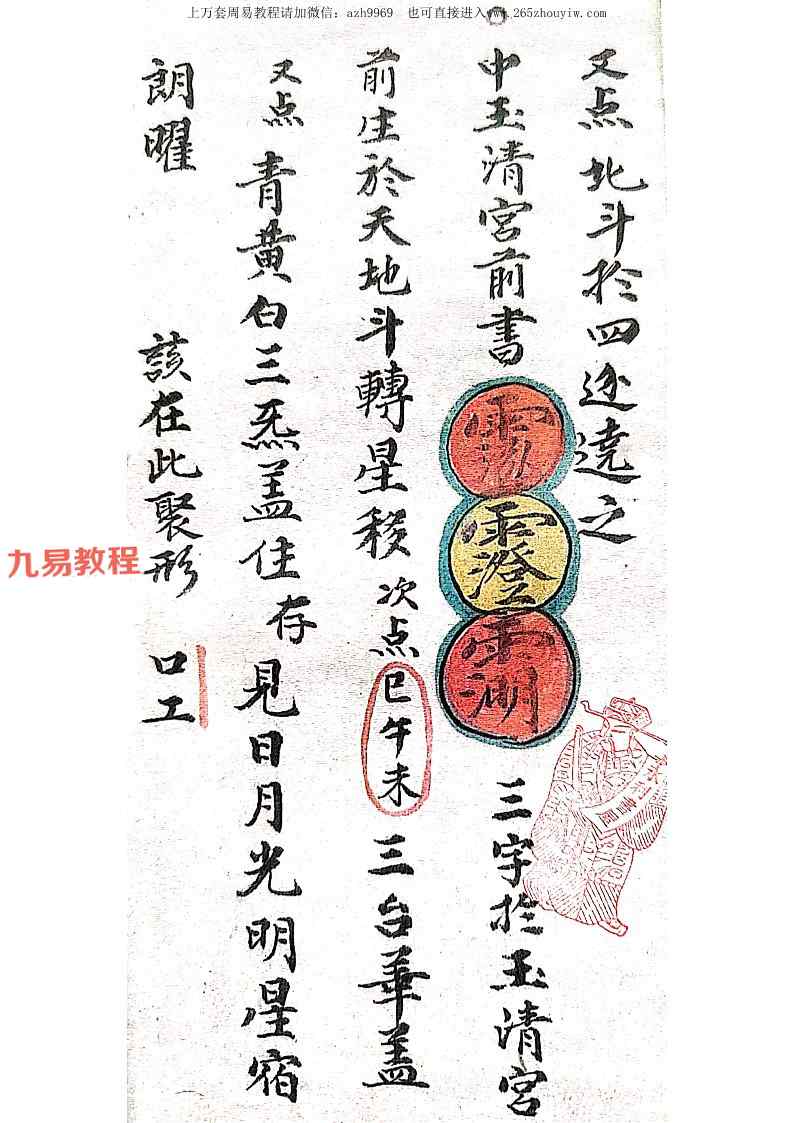 上万套周易教程请加微信：azh9969 也可直接进入www.265zhouyiw.com
又点北斗於四逐遶之
中玉清宮前書
三字於玉清宮
前生於天地斗轉星移次点巳午未三台華盖
又点青黄白三炁盖住存見日月光明星宿
朗曜 該在此聚形 口工
九易教程